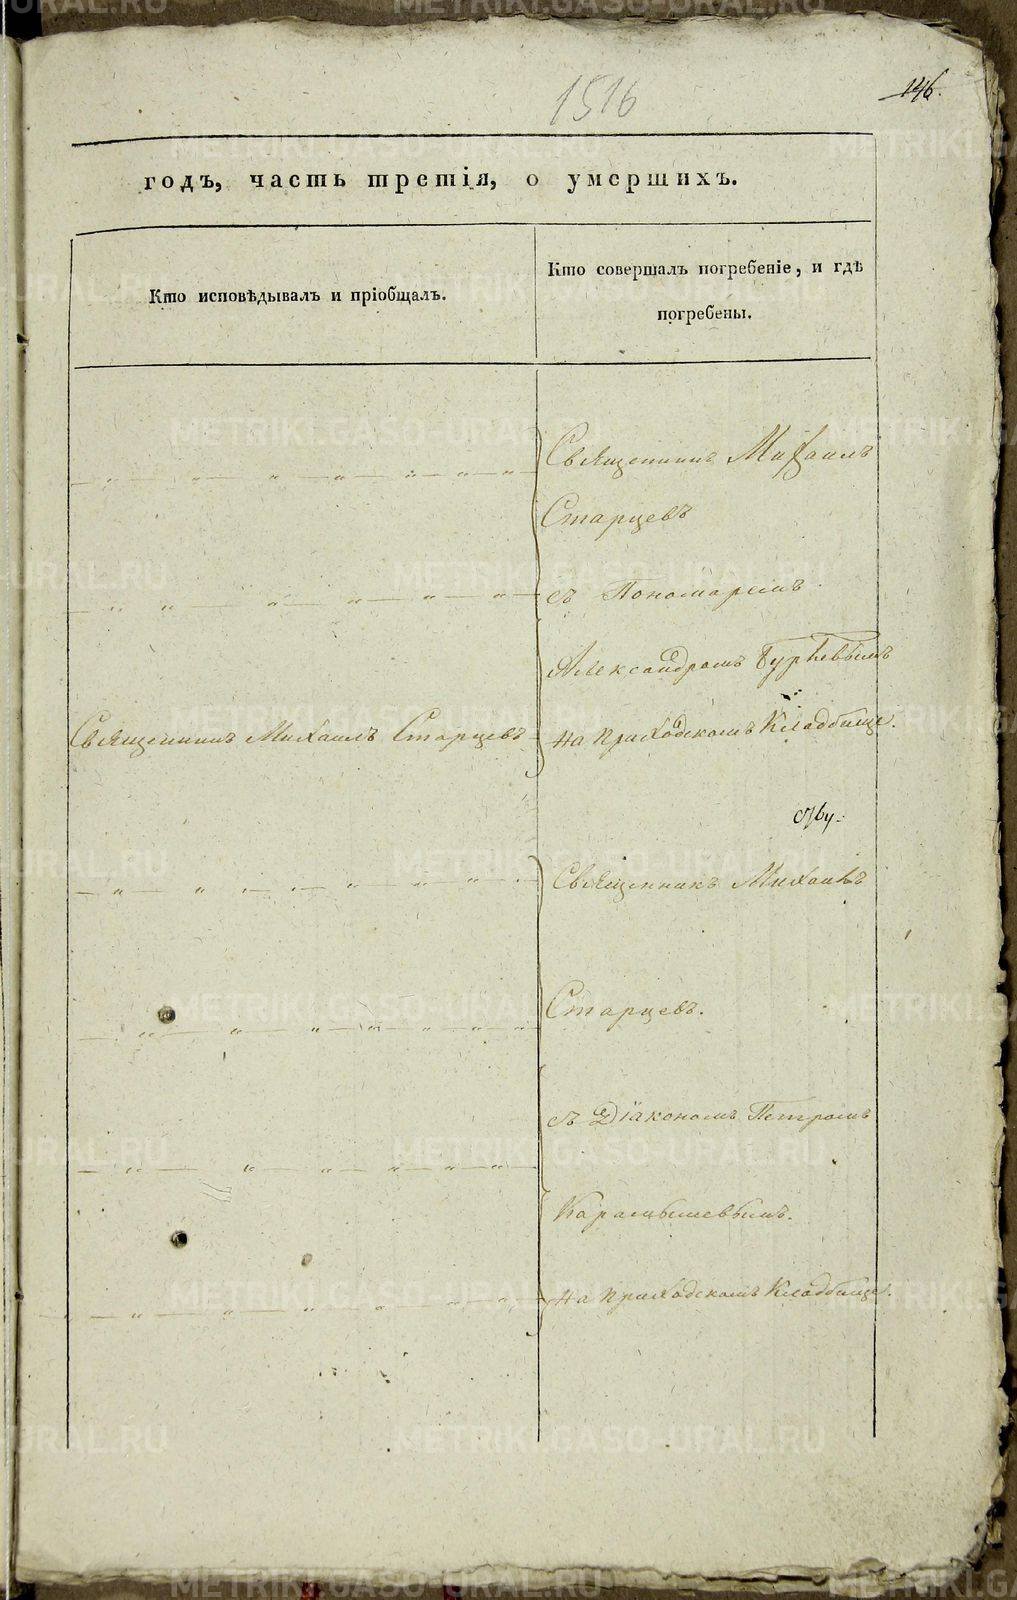 1516
146.
годъ, часть третія, о умершихъ.
Кто исповѣдывалъ и пріобщалъ.
Кто совершалъ погребеніе, и гдѣ
погребены.
Священникъ Михаилъ
Старцевъ
съ Пономаремъ
Александромъ Гурьевымъ
Священникъ Михаилъ Старцевъ
на приходскомъ Кладбище.
Священникъ Михаилъ
Старцевъ.
съ Діакономъ Петромъ
Карамышевымъ.
на приходскомъ Кладбище.
METRIKI.GASO-URAL.RU